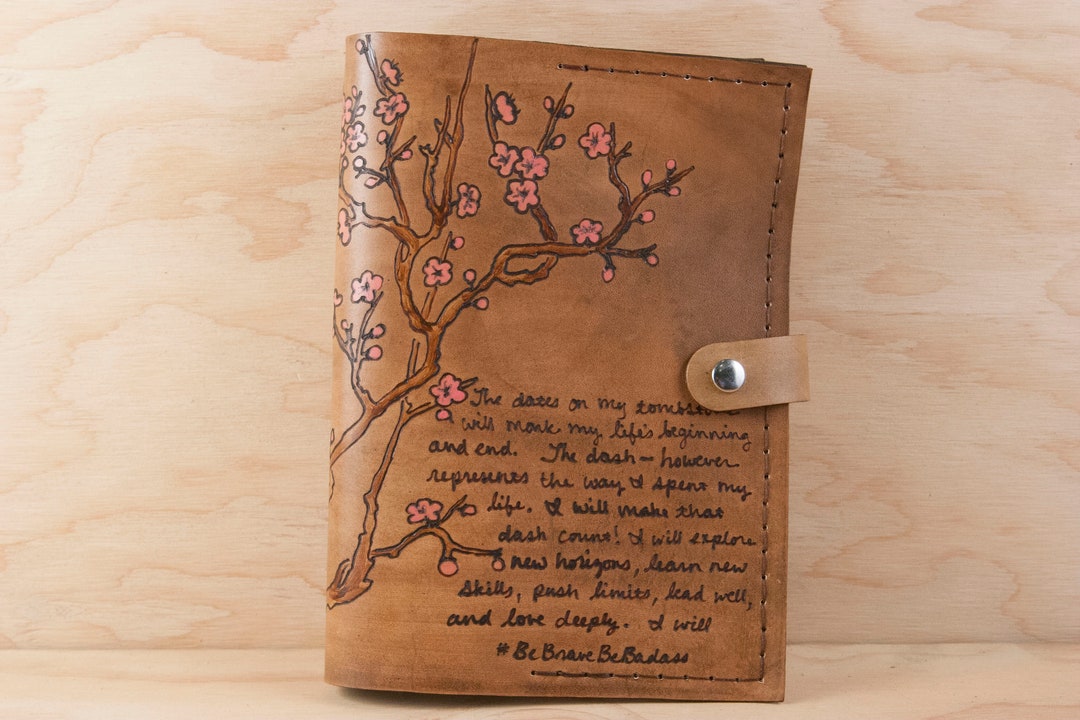 The dates on my tombstone
will mark my life's beginning
and end. The dash – however
represents the way I spent my
life. I will make that
dash count! I will explore
new horizons, learn new
skills, push limits, lead well,
and love deeply. I will
#BeBraveBeBadass